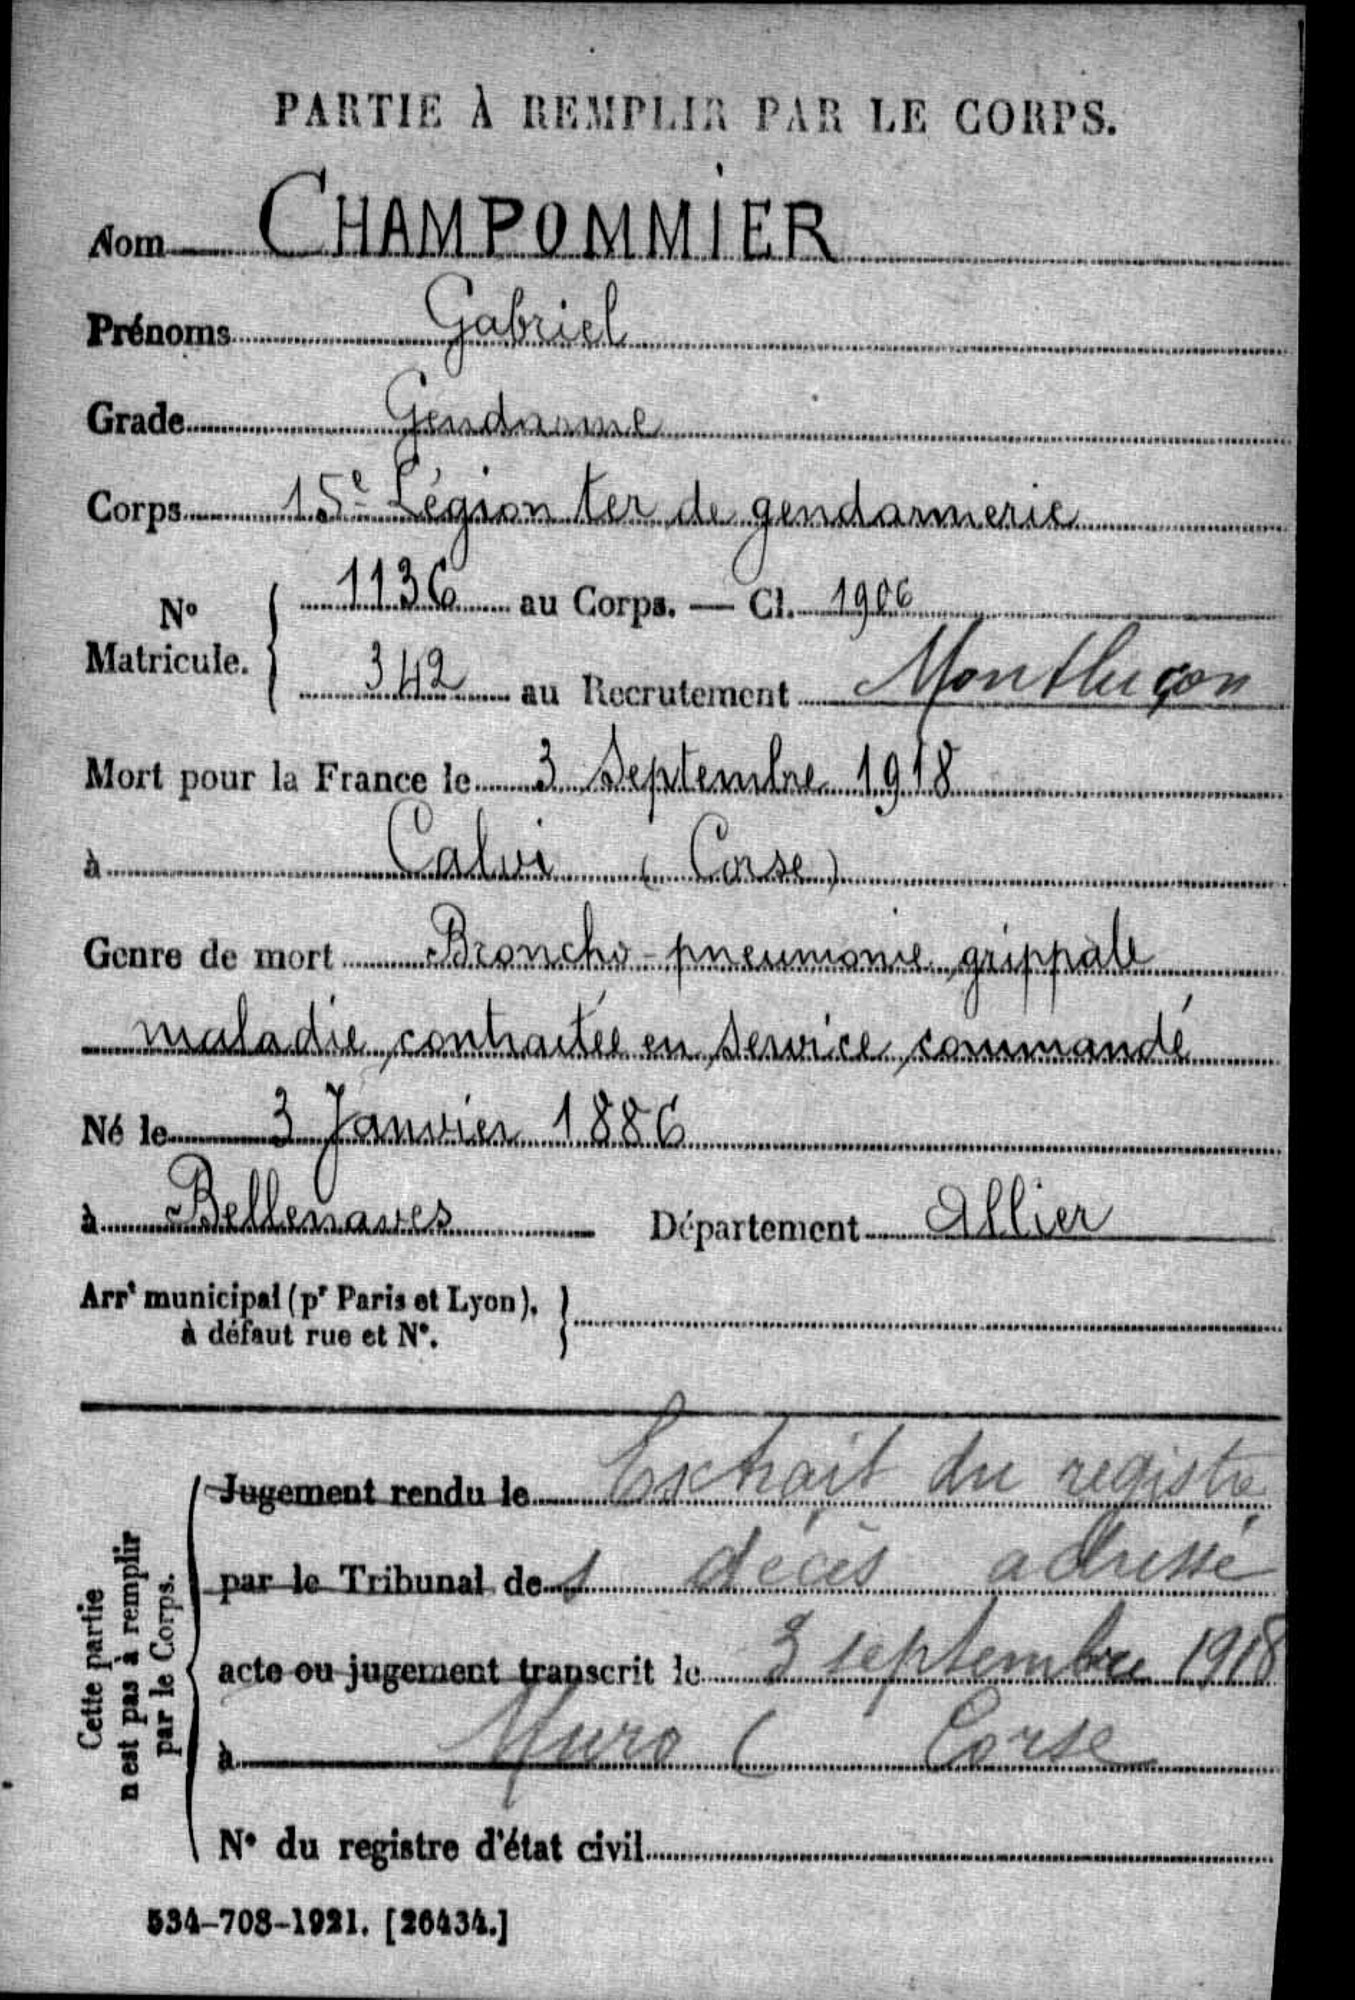 PARTIE À REMPLIR PAR LE CORPS.
Nom CHAMPOMMIER
Prénoms Gabriel
Grade Gendarme
Corps 15e Légion ter de gendarmerie
No Matricule. { 1136 au Corps. — Cl. 1906
342 au Recrutement Montluçon
Mort pour la France le 3 Septembre 1918
à Calvi (Corse)
Genre de mort Broncho-pneumonie grippale
maladie contractée en service commandé
Né le 3 Janvier 1886
à Bellenaves Département Allier
Arrt municipal (pr Paris et Lyon),
à défaut rue et N°. }
Cette partie
n'est pas à remplir
par le Corps.
Jugement rendu le Extrait du registre
par le Tribunal de décès adressé
acte ou jugement transcrit le 3 septembre 1918
à Muro ( Corse
N° du registre d'état civil
534-708-1921. [26434.]